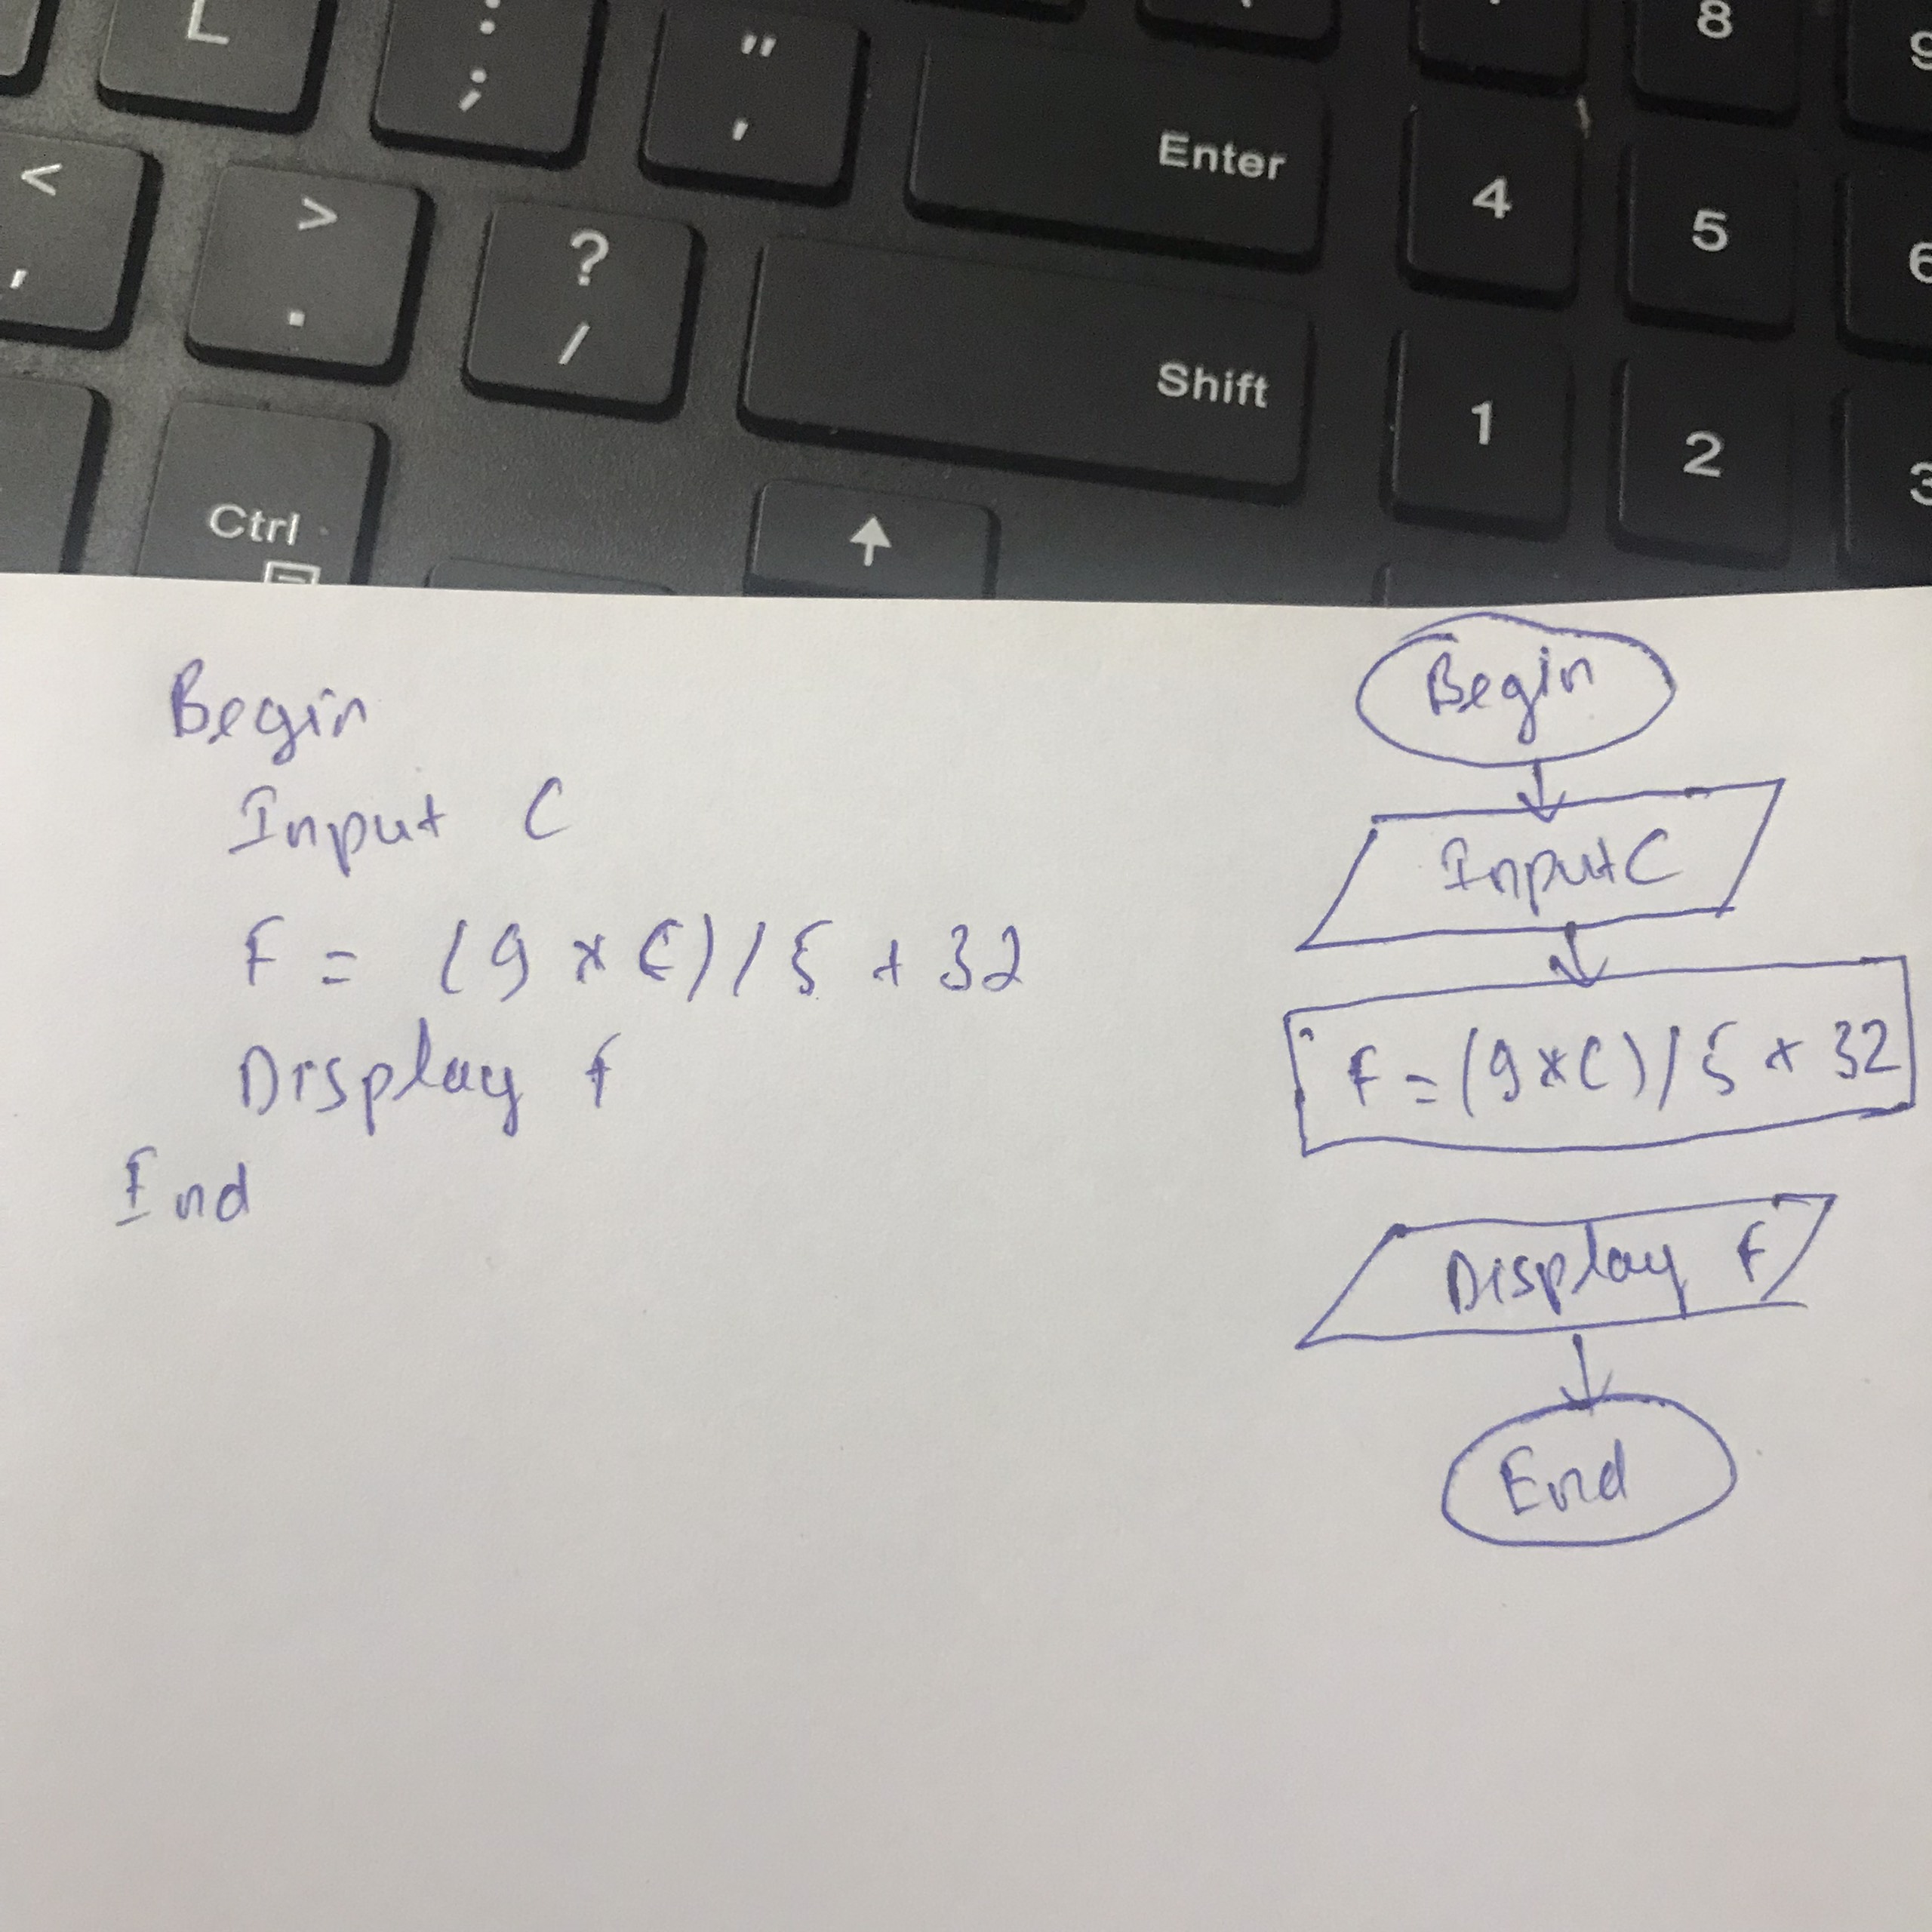 8 9
L : ; " ' Enter 4 5 6
< , > . ? / Shift 1 2 3
Ctrl
Begin
Input C
F = (9 * C) / 5 + 32
Display f
End
Begin
Input C
F = (9 * C) / 5 + 32
Display F
End